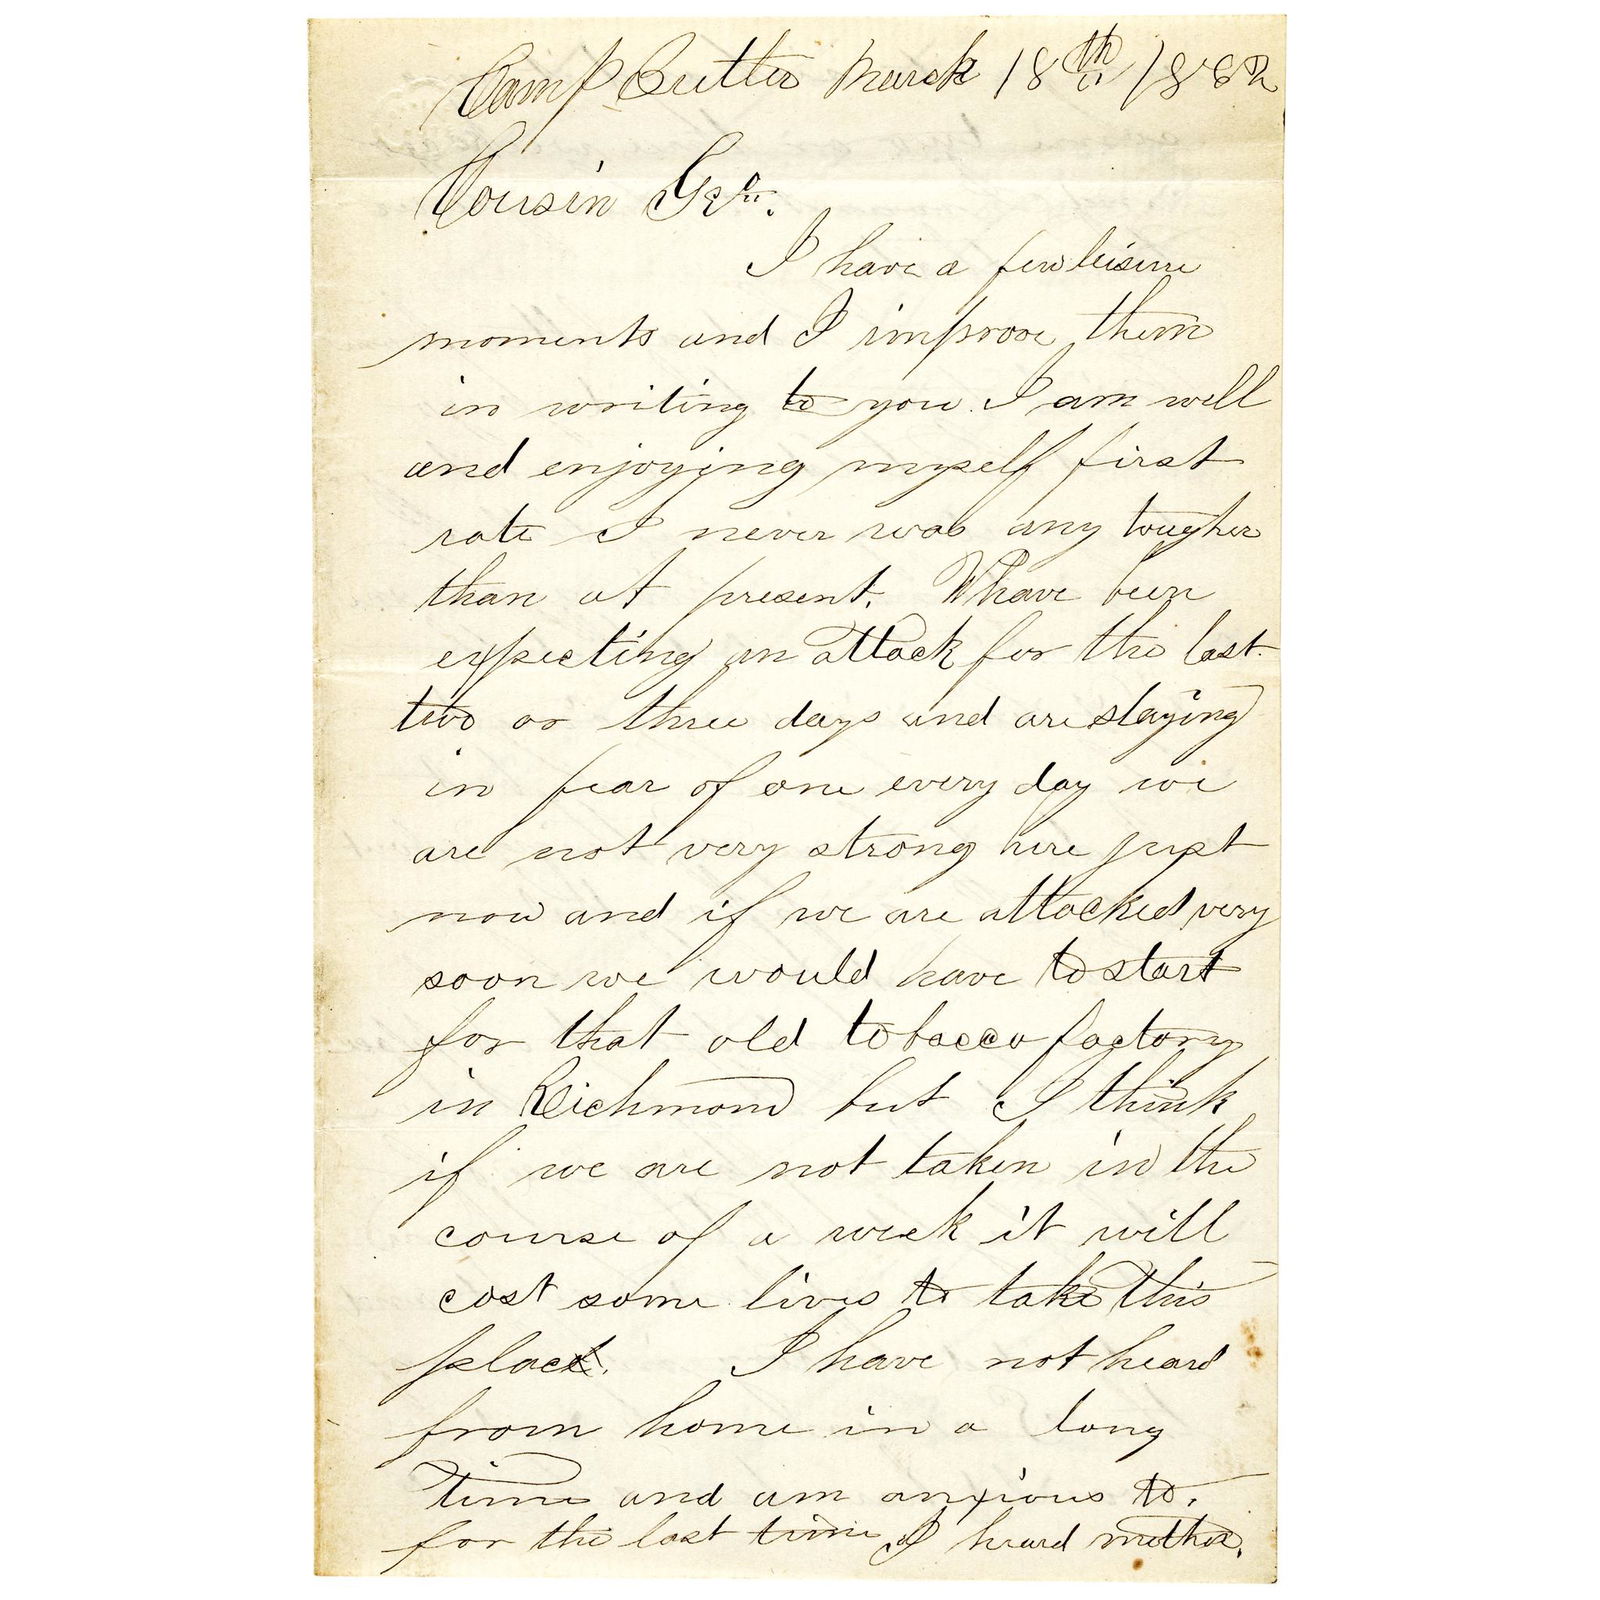 Camp Butler March 18th 1862
Cousin Geo.
I have a few leisure
moments and I improve them
in writing to you. I am well
and enjoying myself first
rate I never was any tougher
than at present. We have been
expecting an attack for the last
two or three days and are staying
in fear of one every day we
are not very strong here just
now and if we are attacked very
soon we would have to start
for that old tobacco factory
in Richmond but I think
if we are not taken in the
course of a week it will
cost some lives to take this
place. I have not heard
from home in a long
time and am anxious to.
for the last time I heard mother.